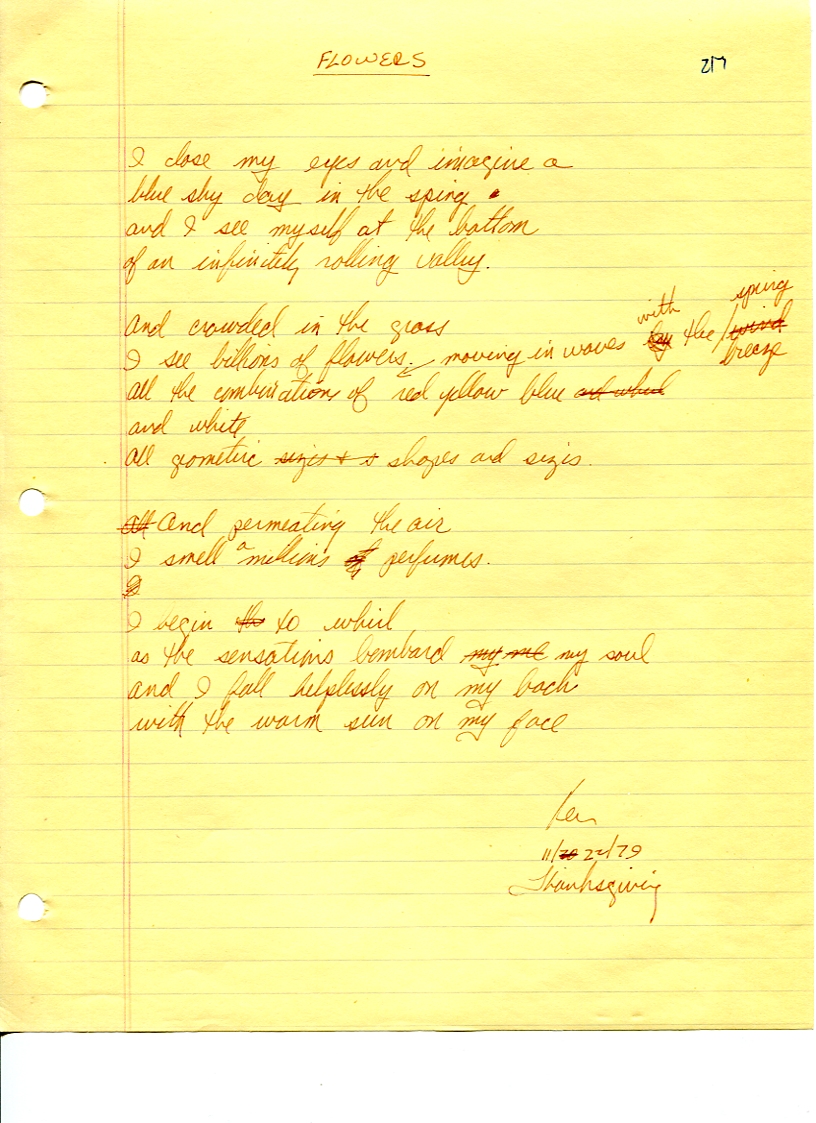 FLOWERS
217
I close my eyes and imagine a
blue sky day in the sping.
and I see myself at the bottom
of an infinitely rolling valley.
And crowded in the grass
I see billions of flowers. moving in waves by with the wind spring breeze
all the combinations of red yellow blue and whit
and white
all geometric sizes + s shapes and sizes.
all And permeating the air
I smell a millions of perfumes.
I begin the to whirl
as the sensations bombard my me my soul
and I fall helplessly on my back
with the warm sun on my face
Ken
11/20 22/79
Thanksgiving